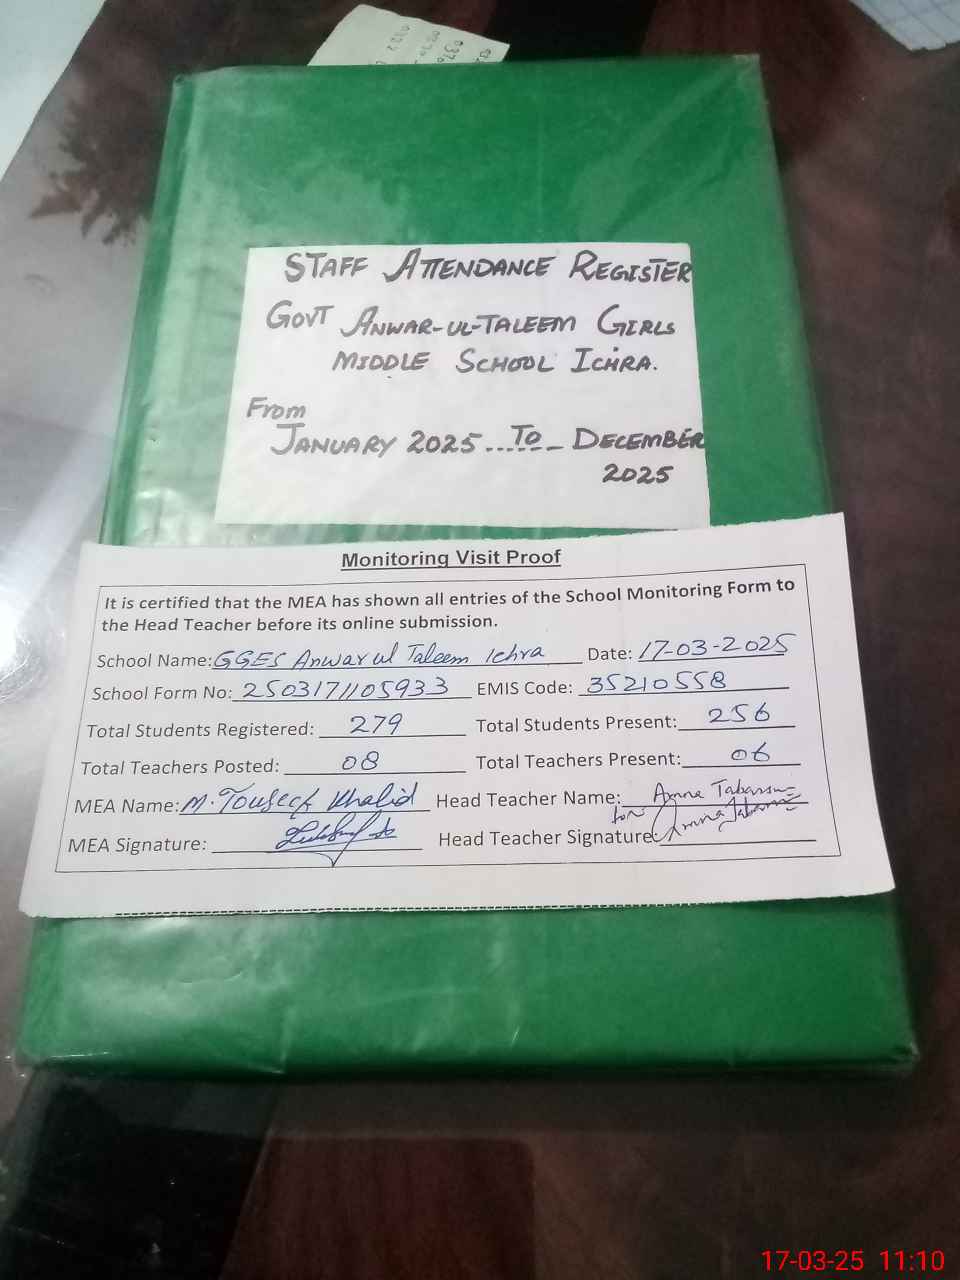 STAFF ATTENDANCE REGISTER
GOVT ANWAR-UL-TALEEM GIRLS
MIDDLE SCHOOL ICHRA.
From
JANUARY 2025 ...TO... DECEMBER
2025
Monitoring Visit Proof
It is certified that the MEA has shown all entries of the School Monitoring Form to
the Head Teacher before its online submission.
School Name: GGES Anwar ul Taleem Ichra Date: 17-03-2025
School Form No: 2503171105933 EMIS Code: 35210558
Total Students Registered: 279 Total Students Present: 256
Total Teachers Posted: 08 Total Teachers Present: 06
MEA Name: M. Touseef Khalid Head Teacher Name: Amna Tabassum
MEA Signature: Head Teacher Signature: for Amna Tabassum
17-03-25 11:10